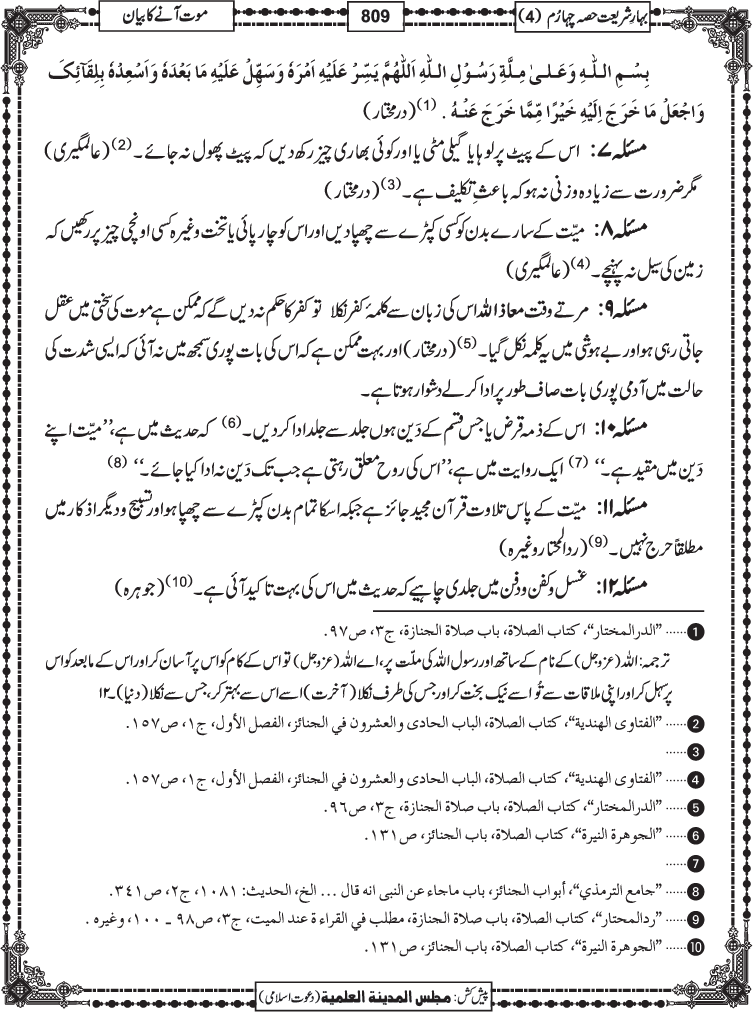 بہارِ شریعت حصہ چہارم (4)
809
موت آنے کا بیان
بِسْمِ اللّٰہِ وَعَلٰی مِلَّةِ رَسُوْلِ اللّٰہِ اَللّٰھُمَّ یَسِّرْ عَلَیْہِ اَمْرَہٗ وَسَھِّلْ عَلَیْہِ مَا بَعْدَہٗ وَاَسْعِدْہُ بِلِقَآئِکَ
وَاجْعَلْ مَا خَرَجَ اِلَیْہِ خَیْرًا مِّمَّا خَرَجَ عَنْہُ . (1) (درمختار)
مسئلہ ۷: اس کے پیٹ پر لوہا یا گیلی مٹی یا اور کوئی بھاری چیز رکھ دیں کہ پیٹ پھول نہ جائے۔ (2) (عالمگیری)
مگر ضرورت سے زیادہ وزنی نہ ہو کہ باعثِ تکلیف ہے۔ (3) (درمختار)
مسئلہ ۸: میّت کے سارے بدن کو کسی کپڑے سے چھپا دیں اور اس کو چار پائی یا تخت وغیرہ کسی اونچی چیز پر رکھیں کہ
زمین کی سیل نہ پہنچے۔ (4) (عالمگیری)
مسئلہ ۹: مرتے وقت معاذ اللہ اس کی زبان سے کلمۂ کفر نکلا تو کفر کا حکم نہ دیں گے کہ ممکن ہے موت کی سختی میں عقل
جاتی رہی ہو اور بے ہوشی میں یہ کلمہ نکل گیا۔ (5) (درمختار) اور بہت ممکن ہے کہ اس کی بات پوری سمجھ میں نہ آئی کہ ایسی شدت کی
حالت میں آدمی پوری بات صاف طور پر ادا کر لے دشوار ہوتا ہے۔
مسئلہ ۱۰: اس کے ذمہ قرض یا جس قسم کے دَین ہوں جلد سے جلد ادا کر دیں۔ (6) کہ حدیث میں ہے، ’’میّت اپنے
دَین میں مقید ہے۔‘‘ (7) ایک روایت میں ہے، ’’اس کی روح معلق رہتی ہے جب تک دَین نہ ادا کیا جائے۔‘‘ (8)
مسئلہ ۱۱: میّت کے پاس تلاوت قرآن مجید جائز ہے جبکہ اسکا تمام بدن کپڑے سے چھپا ہو اور تسبیح و دیگر اذکار میں
مطلقاً حرج نہیں۔ (9) (ردالمحتار وغیرہ)
مسئلہ ۱۲: غسل و کفن و دفن میں جلدی چاہیے کہ حدیث میں اس کی بہت تاکید آئی ہے۔ (10) (جوہرہ)
1 ...... ”الدرالمختار“، کتاب الصلاة، باب صلاة الجنازة، ج۳، ص۹۷.
ترجمہ: اللہ (عزوجل) کے نام کے ساتھ اور رسول اللہ کی ملّت پر، اے اللہ (عزوجل) تو اس کے کام کو اس پر آسان کر اور اس کے مابعد کو اس
پر سہل کر اور اپنی ملاقات سے تُو اسے نیک بخت کر اور جس کی طرف نکلا (آخرت) اسے اس سے بہتر کر، جس سے نکلا (دنیا)۔ ۱۲
2 ...... ”الفتاوی الھندیة“، کتاب الصلاة، الباب الحادی والعشرون في الجنائز، الفصل الأول، ج۱، ص۱۵۷.
3 ......
4 ...... ”الفتاوی الھندیة“، کتاب الصلاة، الباب الحادی والعشرون في الجنائز، الفصل الأول، ج۱، ص۱۵۷.
5 ...... ”الدرالمختار“، کتاب الصلاة، باب صلاة الجنازة، ج۳، ص۹۶.
6 ...... ”الجوھرة النیرة“، کتاب الصلاة، باب الجنائز، ص۱۳۱.
7 ......
8 ...... ”جامع الترمذي“، أبواب الجنائز، باب ماجاء عن النبی انه قال ... الخ، الحدیث: ۱۰۸۱، ج۲، ص۳۴۱.
9 ...... ”ردالمحتار“، کتاب الصلاة، باب صلاة الجنازة، مطلب في القراء ة عند المیت، ج۳، ص۹۸ ـ ۱۰۰، وغیرہ .
10 ...... ”الجوھرة النیرة“، کتاب الصلاة، باب الجنائز، ص۱۳۱.
پیش کش: مجلس المدینة العلمیة (دعوت اسلامی)